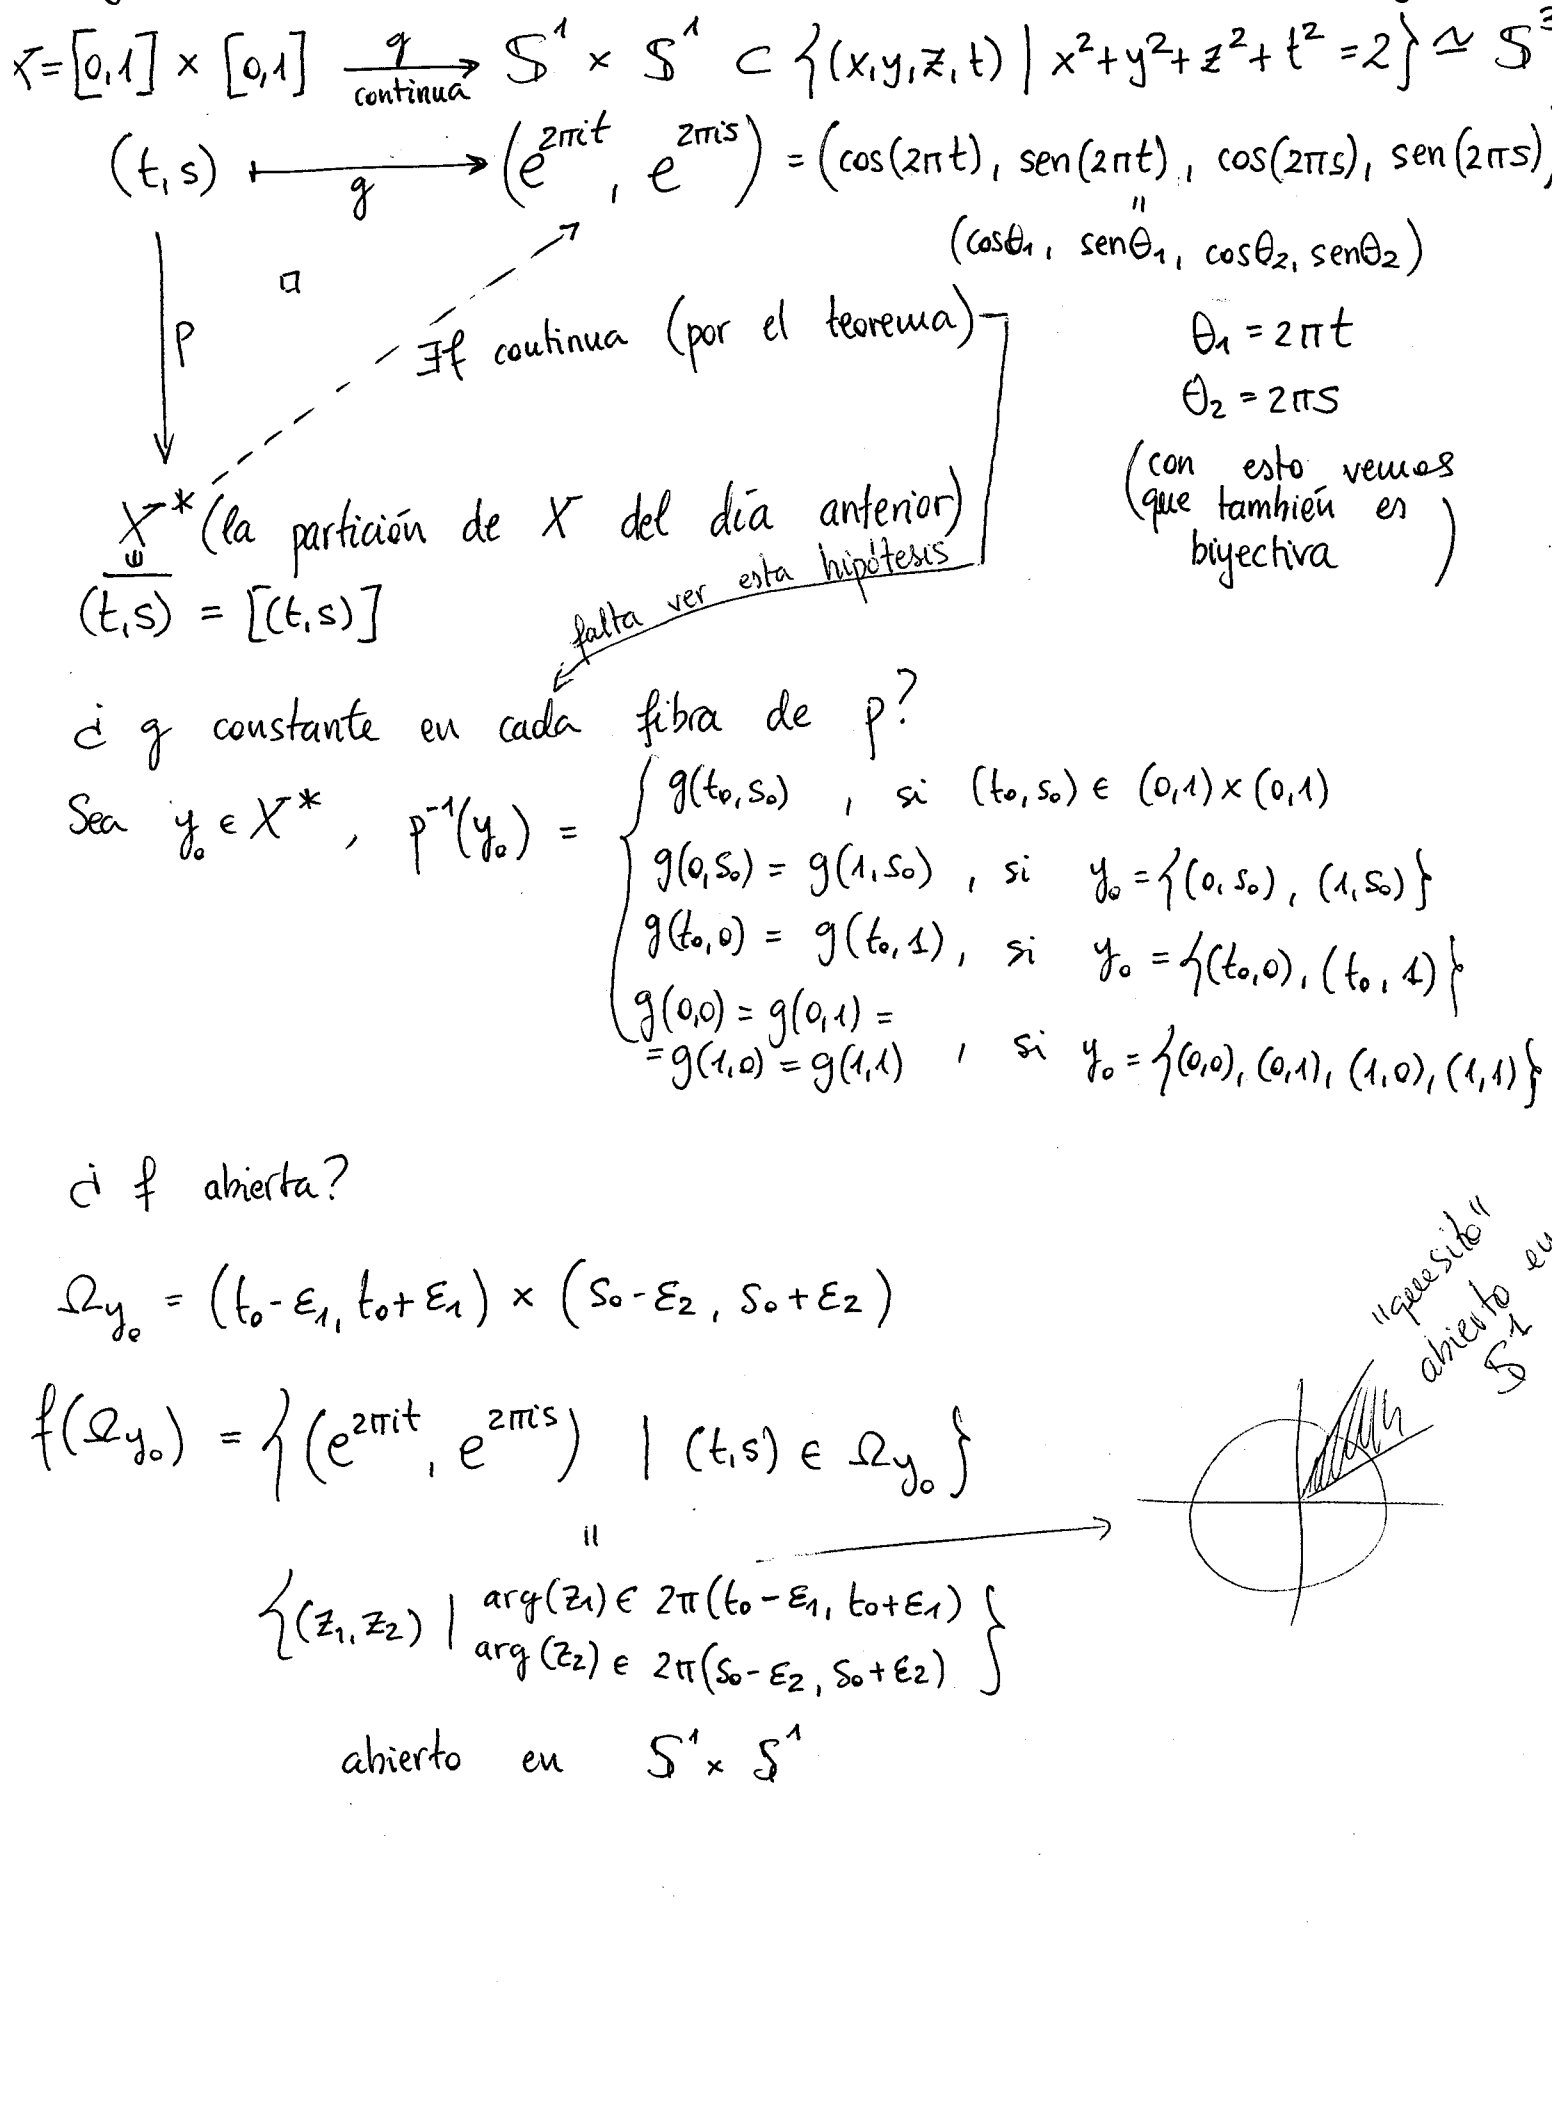 X=[0,1] × [0,1] →g continua S¹ × S¹ ⊂ {(x,y,z,t) | x²+y²+z²+t²=2} ≃ S³
(t,s) ↦g (e^{2πit}, e^{2πis}) = (cos(2πt), sen(2πt), cos(2πs), sen(2πs)
"
(cosθ₁, senθ₁, cosθ₂, senθ₂)
p
∃f continua (por el teorema)
θ₁ = 2πt
θ₂ = 2πs
(con esto vemos
que también es
biyectiva)
X* (la partición de X del día anterior)
(t,s) = [(t,s)]
falta ver esta hipótesis
¿ g constante en cada fibra de p?
Sea y₀ ∈ X*, p⁻¹(y₀) = { g(t₀,s₀) , si (t₀,s₀) ∈ (0,1)×(0,1)
g(0,s₀) = g(1,s₀) , si y₀ = {(0,s₀), (1,s₀)}
g(t₀,0) = g(t₀,1), si y₀ = {(t₀,0), (t₀,1)}
g(0,0) = g(0,1) =
= g(1,0) = g(1,1) , si y₀ = {(0,0), (0,1), (1,0), (1,1)}
¿ f abierta?
Ω_{y₀} = (t₀-ε₁, t₀+ε₁) × (s₀-ε₂, s₀+ε₂)
"quesito"
abierto en
S¹
f(Ω_{y₀}) = {(e^{2πit}, e^{2πis}) | (t,s) ∈ Ω_{y₀}}
"
{(z₁,z₂) | arg(z₁) ∈ 2π(t₀-ε₁, t₀+ε₁)
arg(z₂) ∈ 2π(s₀-ε₂, s₀+ε₂) }
abierto en S¹×S¹